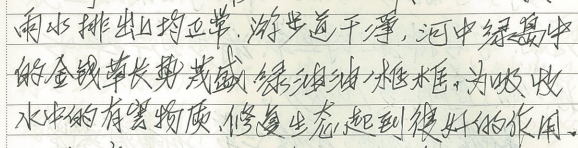 雨水排出口均正常,游步道干净,河中绿岛中
的金钱草长势茂盛,绿油油一框框,为吸收
水中的有害物质,修复生态起到很好的作用。